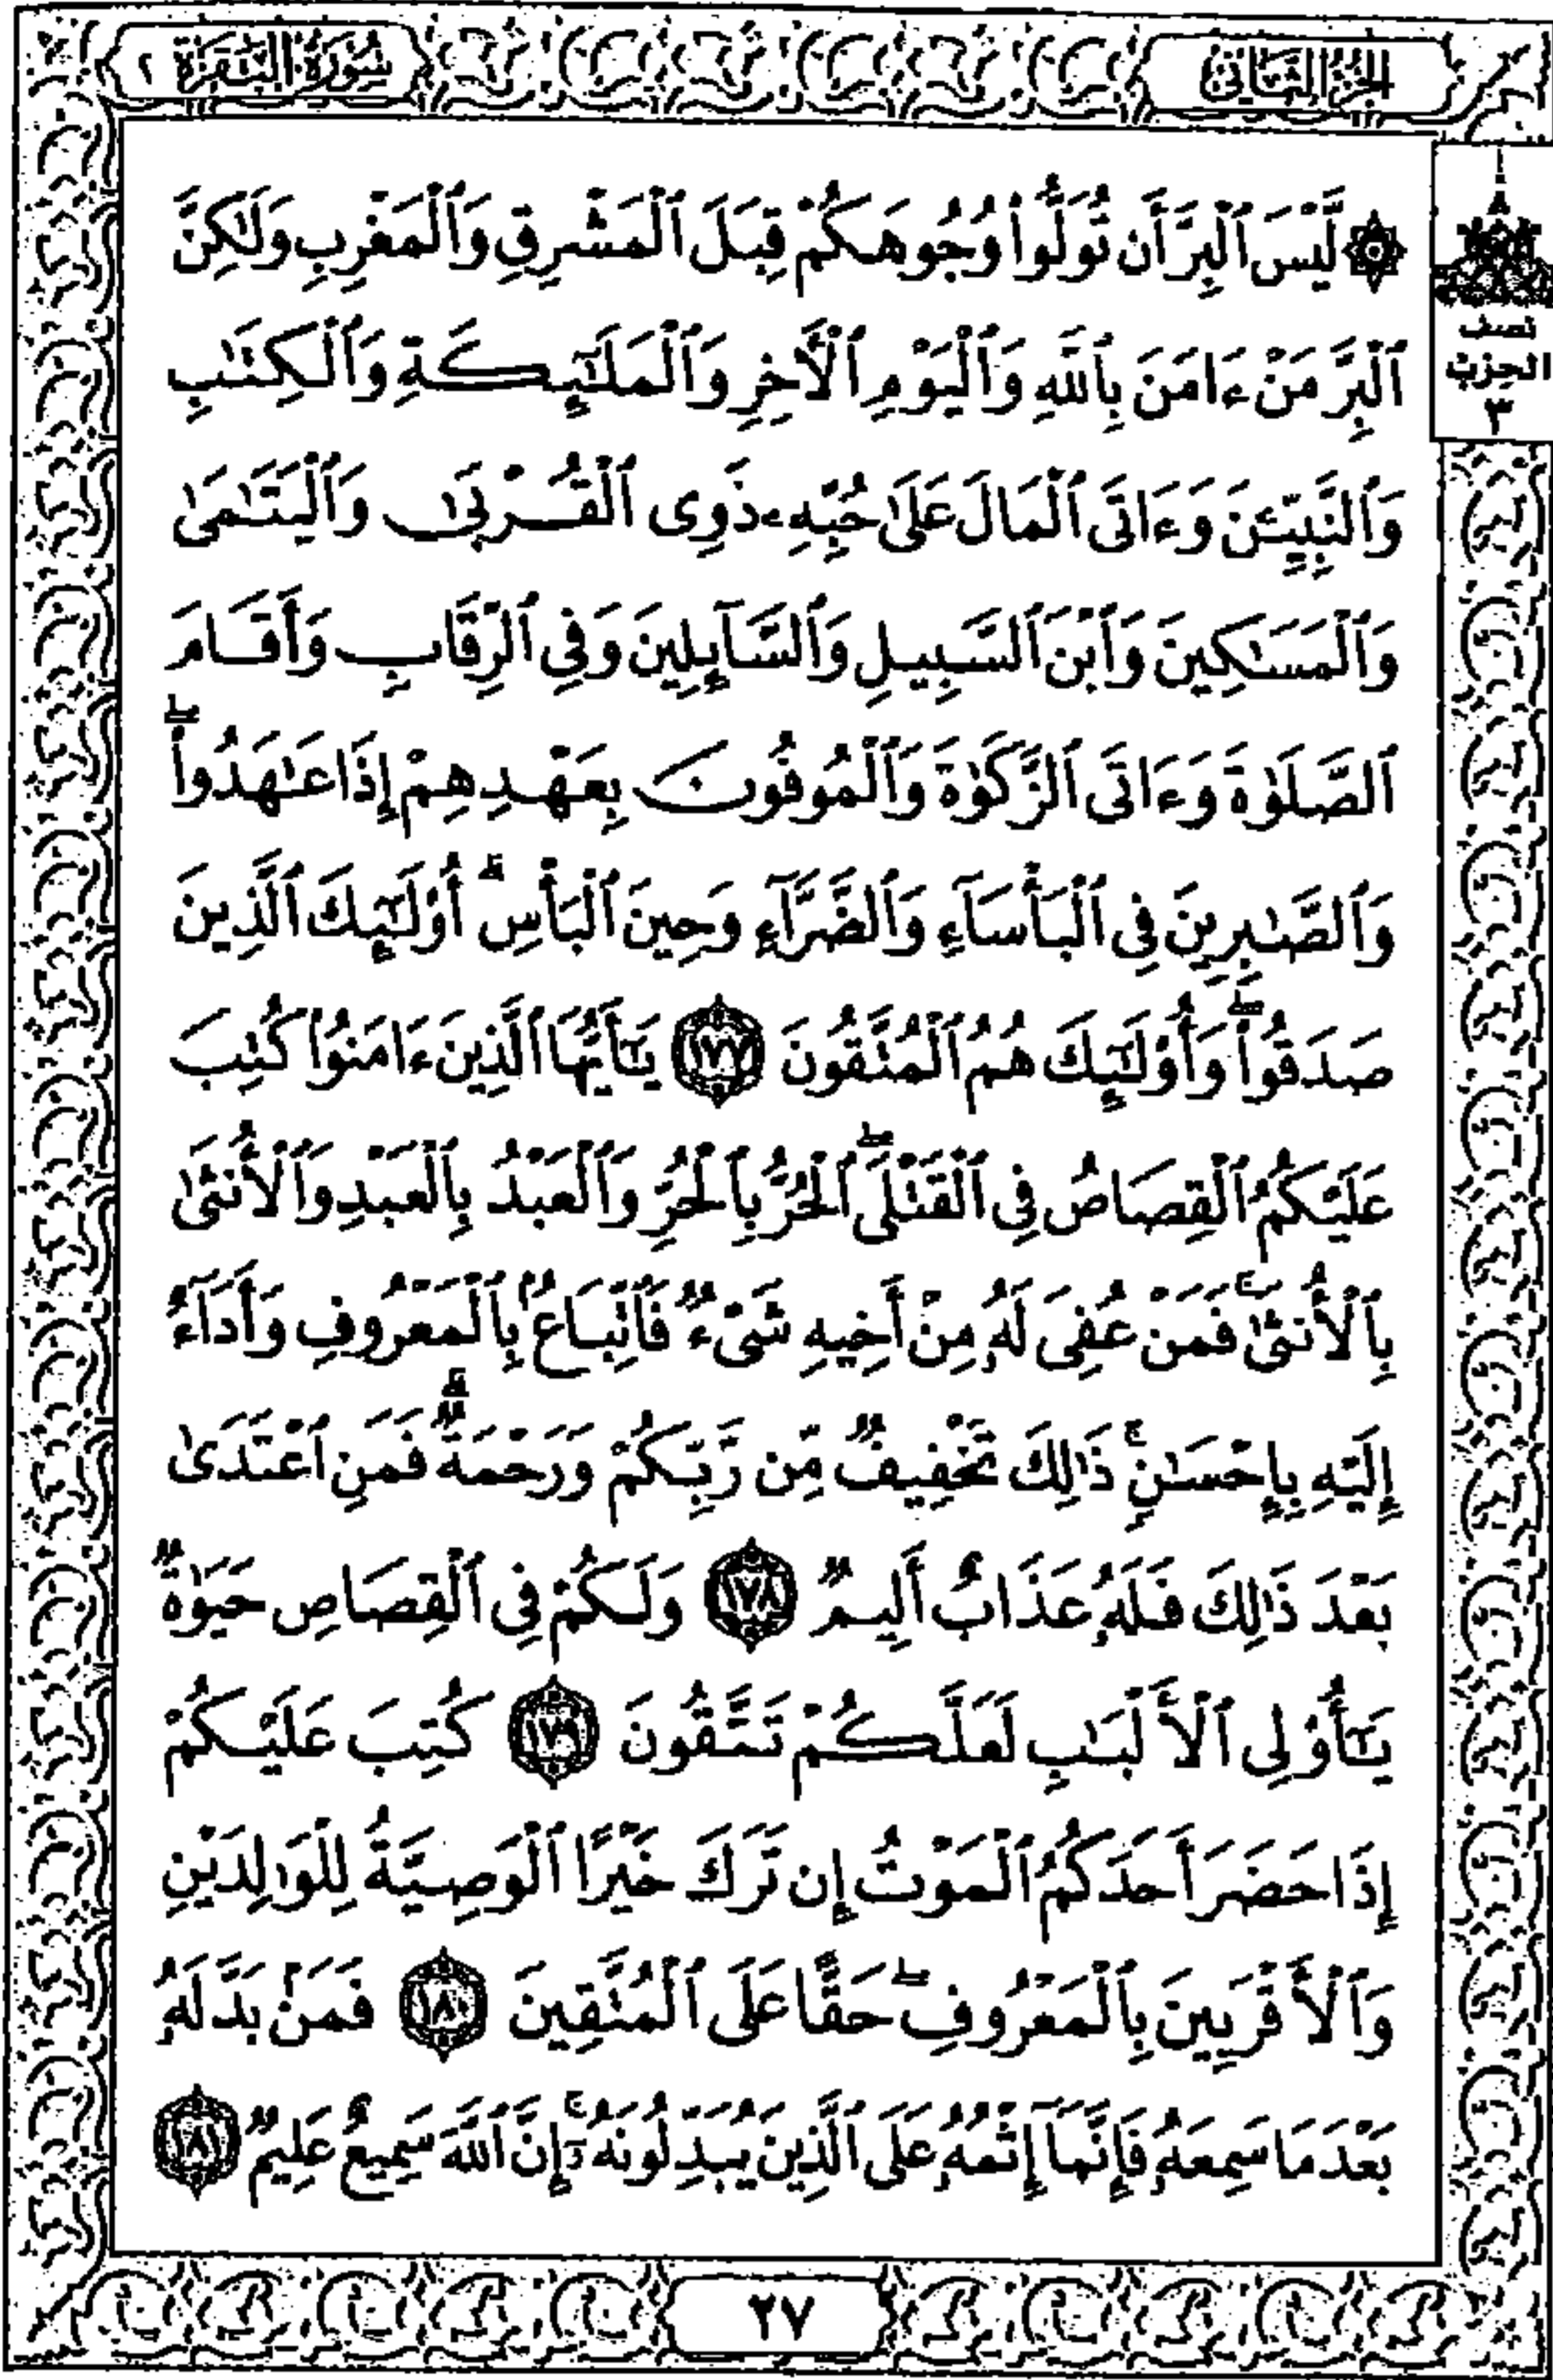 الجزء الثاني
سورة البقرة ٢
نصف
الحزب
٣
۞ لَّيْسَ ٱلْبِرَّ أَن تُوَلُّوا۟ وُجُوهَكُمْ قِبَلَ ٱلْمَشْرِقِ وَٱلْمَغْرِبِ وَلَٰكِنَّ
ٱلْبِرَّ مَنْ ءَامَنَ بِٱللَّهِ وَٱلْيَوْمِ ٱلْأَخِرِ وَٱلْمَلَٰٓئِكَةِ وَٱلْكِتَٰبِ
وَٱلنَّبِيِّـۧنَ وَءَاتَى ٱلْمَالَ عَلَىٰ حُبِّهِۦ ذَوِى ٱلْقُرْبَىٰ وَٱلْيَتَٰمَىٰ
وَٱلْمَسَٰكِينَ وَٱبْنَ ٱلسَّبِيلِ وَٱلسَّآئِلِينَ وَفِى ٱلرِّقَابِ وَأَقَامَ
ٱلصَّلَوٰةَ وَءَاتَى ٱلزَّكَوٰةَ وَٱلْمُوفُونَ بِعَهْدِهِمْ إِذَا عَٰهَدُوا۟ ۖ
وَٱلصَّٰبِرِينَ فِى ٱلْبَأْسَآءِ وَٱلضَّرَّآءِ وَحِينَ ٱلْبَأْسِ ۗ أُو۟لَٰٓئِكَ ٱلَّذِينَ
صَدَقُوا۟ ۖ وَأُو۟لَٰٓئِكَ هُمُ ٱلْمُتَّقُونَ ١٧٧ يَٰٓأَيُّهَا ٱلَّذِينَ ءَامَنُوا۟ كُتِبَ
عَلَيْكُمُ ٱلْقِصَاصُ فِى ٱلْقَتْلَى ۖ ٱلْحُرُّ بِٱلْحُرِّ وَٱلْعَبْدُ بِٱلْعَبْدِ وَٱلْأُنثَىٰ
بِٱلْأُنثَىٰ ۚ فَمَنْ عُفِىَ لَهُۥ مِنْ أَخِيهِ شَىْءٌ فَٱتِّبَاعٌۢ بِٱلْمَعْرُوفِ وَأَدَآءٌ
إِلَيْهِ بِإِحْسَٰنٍ ۗ ذَٰلِكَ تَخْفِيفٌ مِّن رَّبِّكُمْ وَرَحْمَةٌ ۗ فَمَنِ ٱعْتَدَىٰ
بَعْدَ ذَٰلِكَ فَلَهُۥ عَذَابٌ أَلِيمٌ ١٧٨ وَلَكُمْ فِى ٱلْقِصَاصِ حَيَوٰةٌ
يَٰٓأُو۟لِى ٱلْأَلْبَٰبِ لَعَلَّكُمْ تَتَّقُونَ ١٧٩ كُتِبَ عَلَيْكُمْ
إِذَا حَضَرَ أَحَدَكُمُ ٱلْمَوْتُ إِن تَرَكَ خَيْرًا ٱلْوَصِيَّةُ لِلْوَٰلِدَيْنِ
وَٱلْأَقْرَبِينَ بِٱلْمَعْرُوفِ ۖ حَقًّا عَلَى ٱلْمُتَّقِينَ ١٨٠ فَمَنۢ بَدَّلَهُۥ
بَعْدَمَا سَمِعَهُۥ فَإِنَّمَآ إِثْمُهُۥ عَلَى ٱلَّذِينَ يُبَدِّلُونَهُۥٓ ۚ إِنَّ ٱللَّهَ سَمِيعٌ عَلِيمٌ ١٨١
٢٧